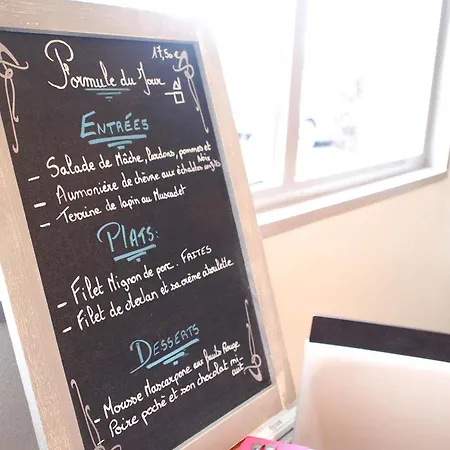 Formule du Jour
17,50€
ENTRÉES
- Salade de Mâche, lardons, pommes et Noix
- Aumonière de chèvre aux échalotes confites
- Terrine de lapin au Muscadet
PLATS:
- Filet Mignon de porc. FRITES
- Filet de Merlan et sa crème ciboulette
DESSERTS
- Mousse Mascarpone aux fruits Rouge
- Poire poché et son chocolat mi cuit